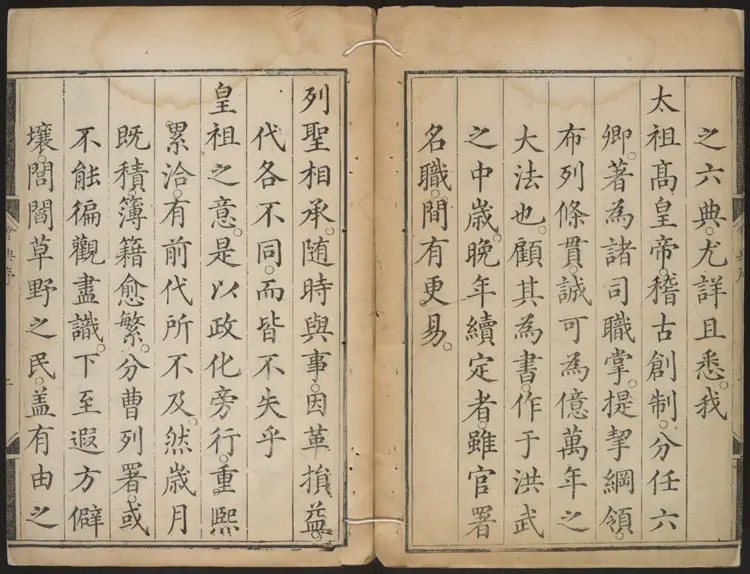 之六典。尤詳且悉。我
太祖高皇帝。稽古創制。分任六
卿。著為諸司職掌。提挈綱領。
布列條貫。誠可為億萬年之
大法也。顧其為書。作于洪武
之中歲。晚年續定者。雖官署
名職。間有更易。
列聖相承。随時與事。因革損益。
代各不同。而皆不失乎
皇祖之意。是以政化旁行。重熈
累洽。有前代所不及。然歲月
既積。簿籍愈繁。分曹列署。或
不能徧觀盡識。下至遐方僻
壤。閭閻草野之民。盖有由之